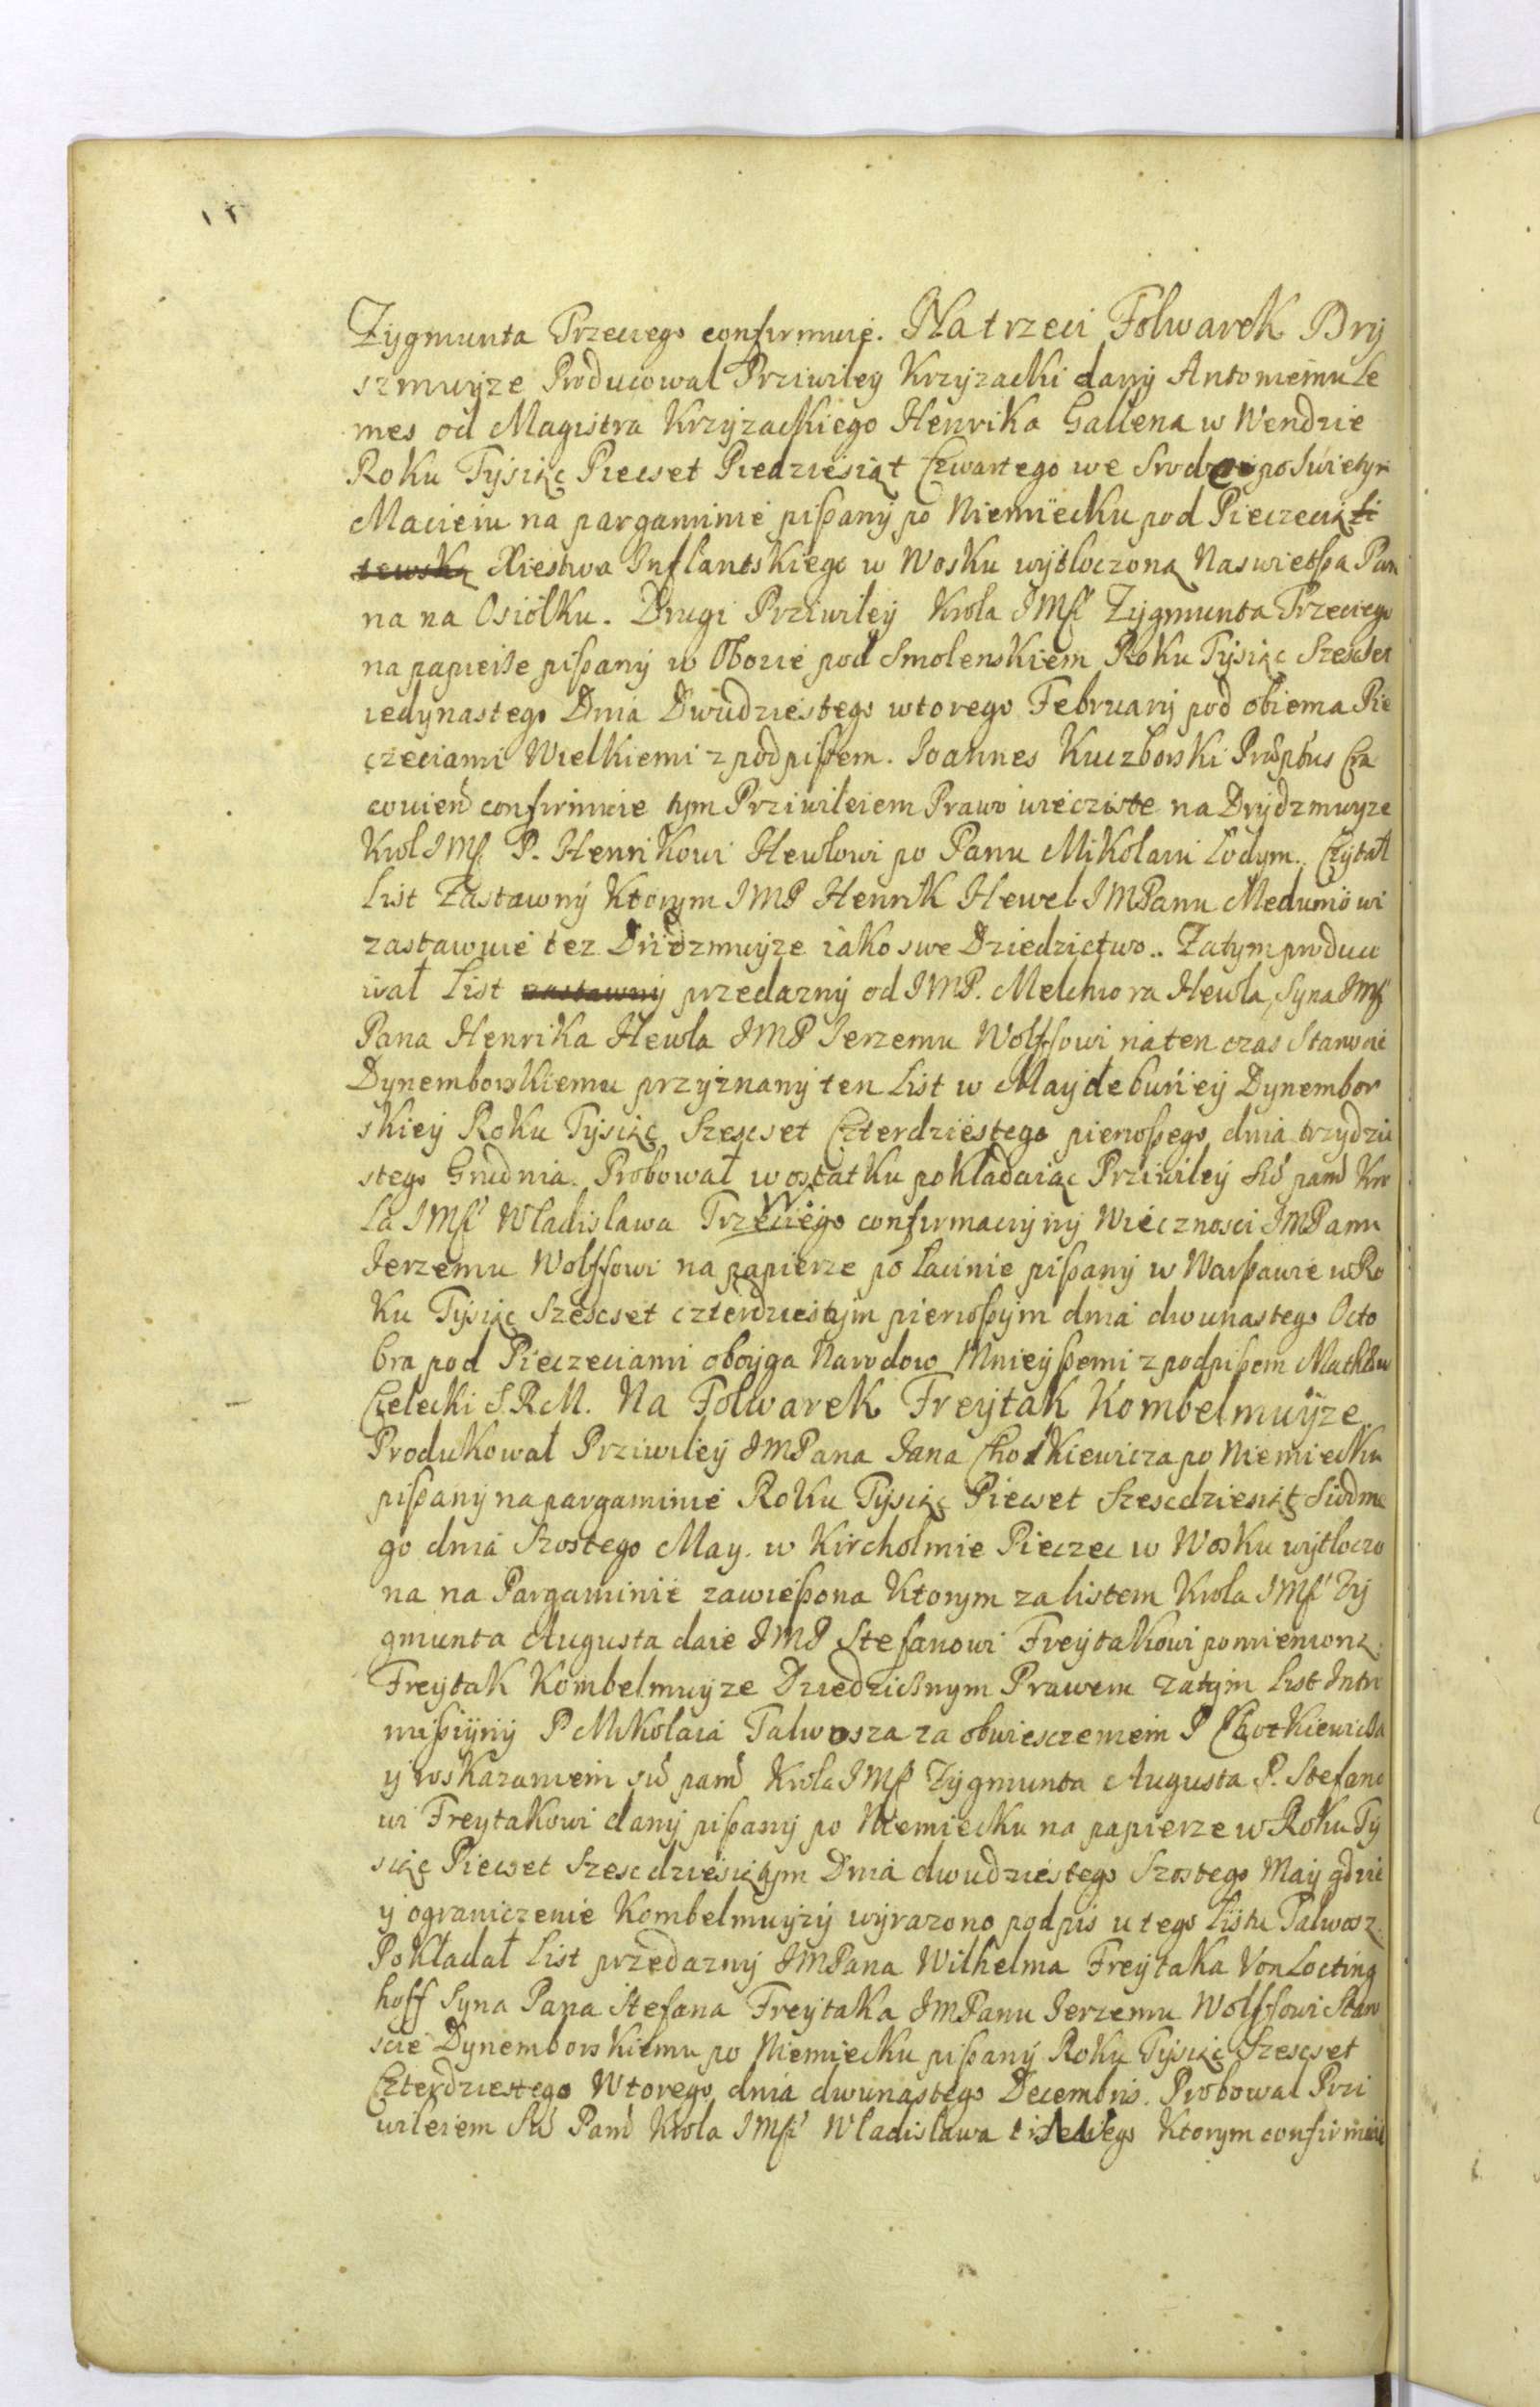 Zygmunta Trzeciego confirmuię. Na trzeci Folwarek Dry
szmuyze Producował Prziwiley Krzyzacki dany Antoniemu Le
mes od Magistra Krzyzackiego Henrika Gallena w Wendzie
Roku Tysiąc Piecset Piedziesiąt Czwartego we Srode po Swietym
Macieiu na pargaminie pisany po Niemiecku pod Pieczecią Li
tewską Xiestwa Inflantskiego w Wosku wytłoczoną Naswietsza Pan
na na Osiołku. Drugi Prziwiley Krola JMści Zygmunta Trzeciego
na papierze pisany w Obozie pod Smolenskiem Roku Tysiąc Szescset
iedynastego Dnia Dwudziestego wtorego February pod obiema Pie
czeciami Wielkiemi z podpisem. Joannes Kuczborski Cra
covien confirmuie tym Prziwileiem Prawo wiecziste na Drydzmuyze
Krol JMść P. Henrikowi Hewlowi po Panu Mikołaiu Lodym. Czytał
List Zastawny Ktorym JMP Henrik Hewel JMPanu Medumowi
zastawuie tez Dridzmuyze iako swe Dziedzictwo. Zatym produco
wał List zastawny przedazny od JMP. Melchiora Hewla, Syna JMści
Pana Henrika Hewla JMP Jerzemu Wolffowi na ten czas Staroscie
Dynemborskiemu przyznany ten List w Maydeburiey Dynembor
skiey Roku Tysiąc Szescset Czterdziestego pierwszego dnia trzydzie
stego Grudnia. Probował w ostatku pokładaiąc Prziwiley Sw pam Kro
la JMści Władisława Trzeciego confirmacyiny Wiecznosci JMPanu
Jerzemu Wolffowi na papierze po Łacinie pisany w Warszawie w Ro
ku Tysiąc Szescset czterdziestym pierwszym dnia dwunastego Octo
bra pod Pieczeciami oboyga Narodow Mnieyszemi z podpisem
Cielecki S.R.M. Na Folwarek Freytak Kombelmuyze
Produkował Przywiley JMPana Jana Chodkiewicza po Niemiecku
pisany na pargaminie Roku Tysiąc Piecset Szescdziesiąt Siodme
go dnia Szostego May. w Kircholmie Pieczec w Wosku wytłoczo
na na Pargaminie zawieszona Ktorym za listem Krola JMści Zy
gmunta Augusta daie JMP Stefanowi Freytakowi pomienioną
Freytak Kombelmuyze Dziedzicznym Prawem zatym List Intro
missiyny P Mikołaia Talwosza za obwieszczeniem P Chotkiewicza
y wskazaniem sw pam Krola JMści Zygmunta Augusta P. Stefano
wi Freytakowi dany pisany po Niemiecku na papierze w Roku Ty
siąc Piecset Szescdziesiątym Dnia dwudziestego Szostego May gdzie
y ograniczenie Kombelmuyzy wyrazono podpis u tego Listu Talwosz.
Pokładał List przedazny JMPana Wilhelma Freytaka Von Locting
hoff Syna Pana Stefana Freytaka JMPanu Jerzemu Wolffowi Staro
scie Dynemborskiemu po Niemiecku pisany Roku Tysiąc Szescset
Czterdziestego Wtorego dnia dwunastego Decembris. Probował Przi
wileiem Sw Pam Krola JMści Władisława Ktorym confirmuie